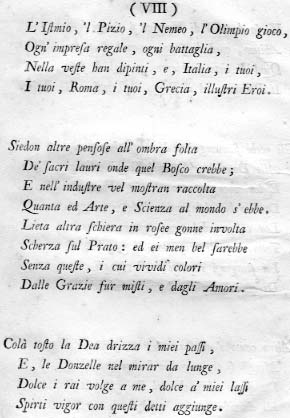 ( VIII )
L' Istmio, 'l Pizio, 'l Nemeo, l' Olimpio gioco,
Ogn' impresa regale, ogni battaglia,
Nella veste han dipinti, e, Italia, i tuoi,
I tuoi, Roma, i tuoi, Grecia, illustri Eroi.
Siedon altre pensose all' ombra folta
De' sacri lauri onde quel Bosco crebbe;
E nell' industre vel mostran raccolta
Quanta ed Arte, e Scienza al mondo s' ebbe.
Lieta altra schiera in rosee gonne involta
Scherza sul Prato: ed ei men bel sarebbe
Senza queste, i cui vividi colori
Dalle Grazie fur misti, e dagli Amori.
Colà tosto la Dea drizza i miei passi,
E, le Donzelle nel mirar da lunge,
Dolce i rai volge a me, dolce a' miei lassi
Spirti vigor con questi detti aggiunge.